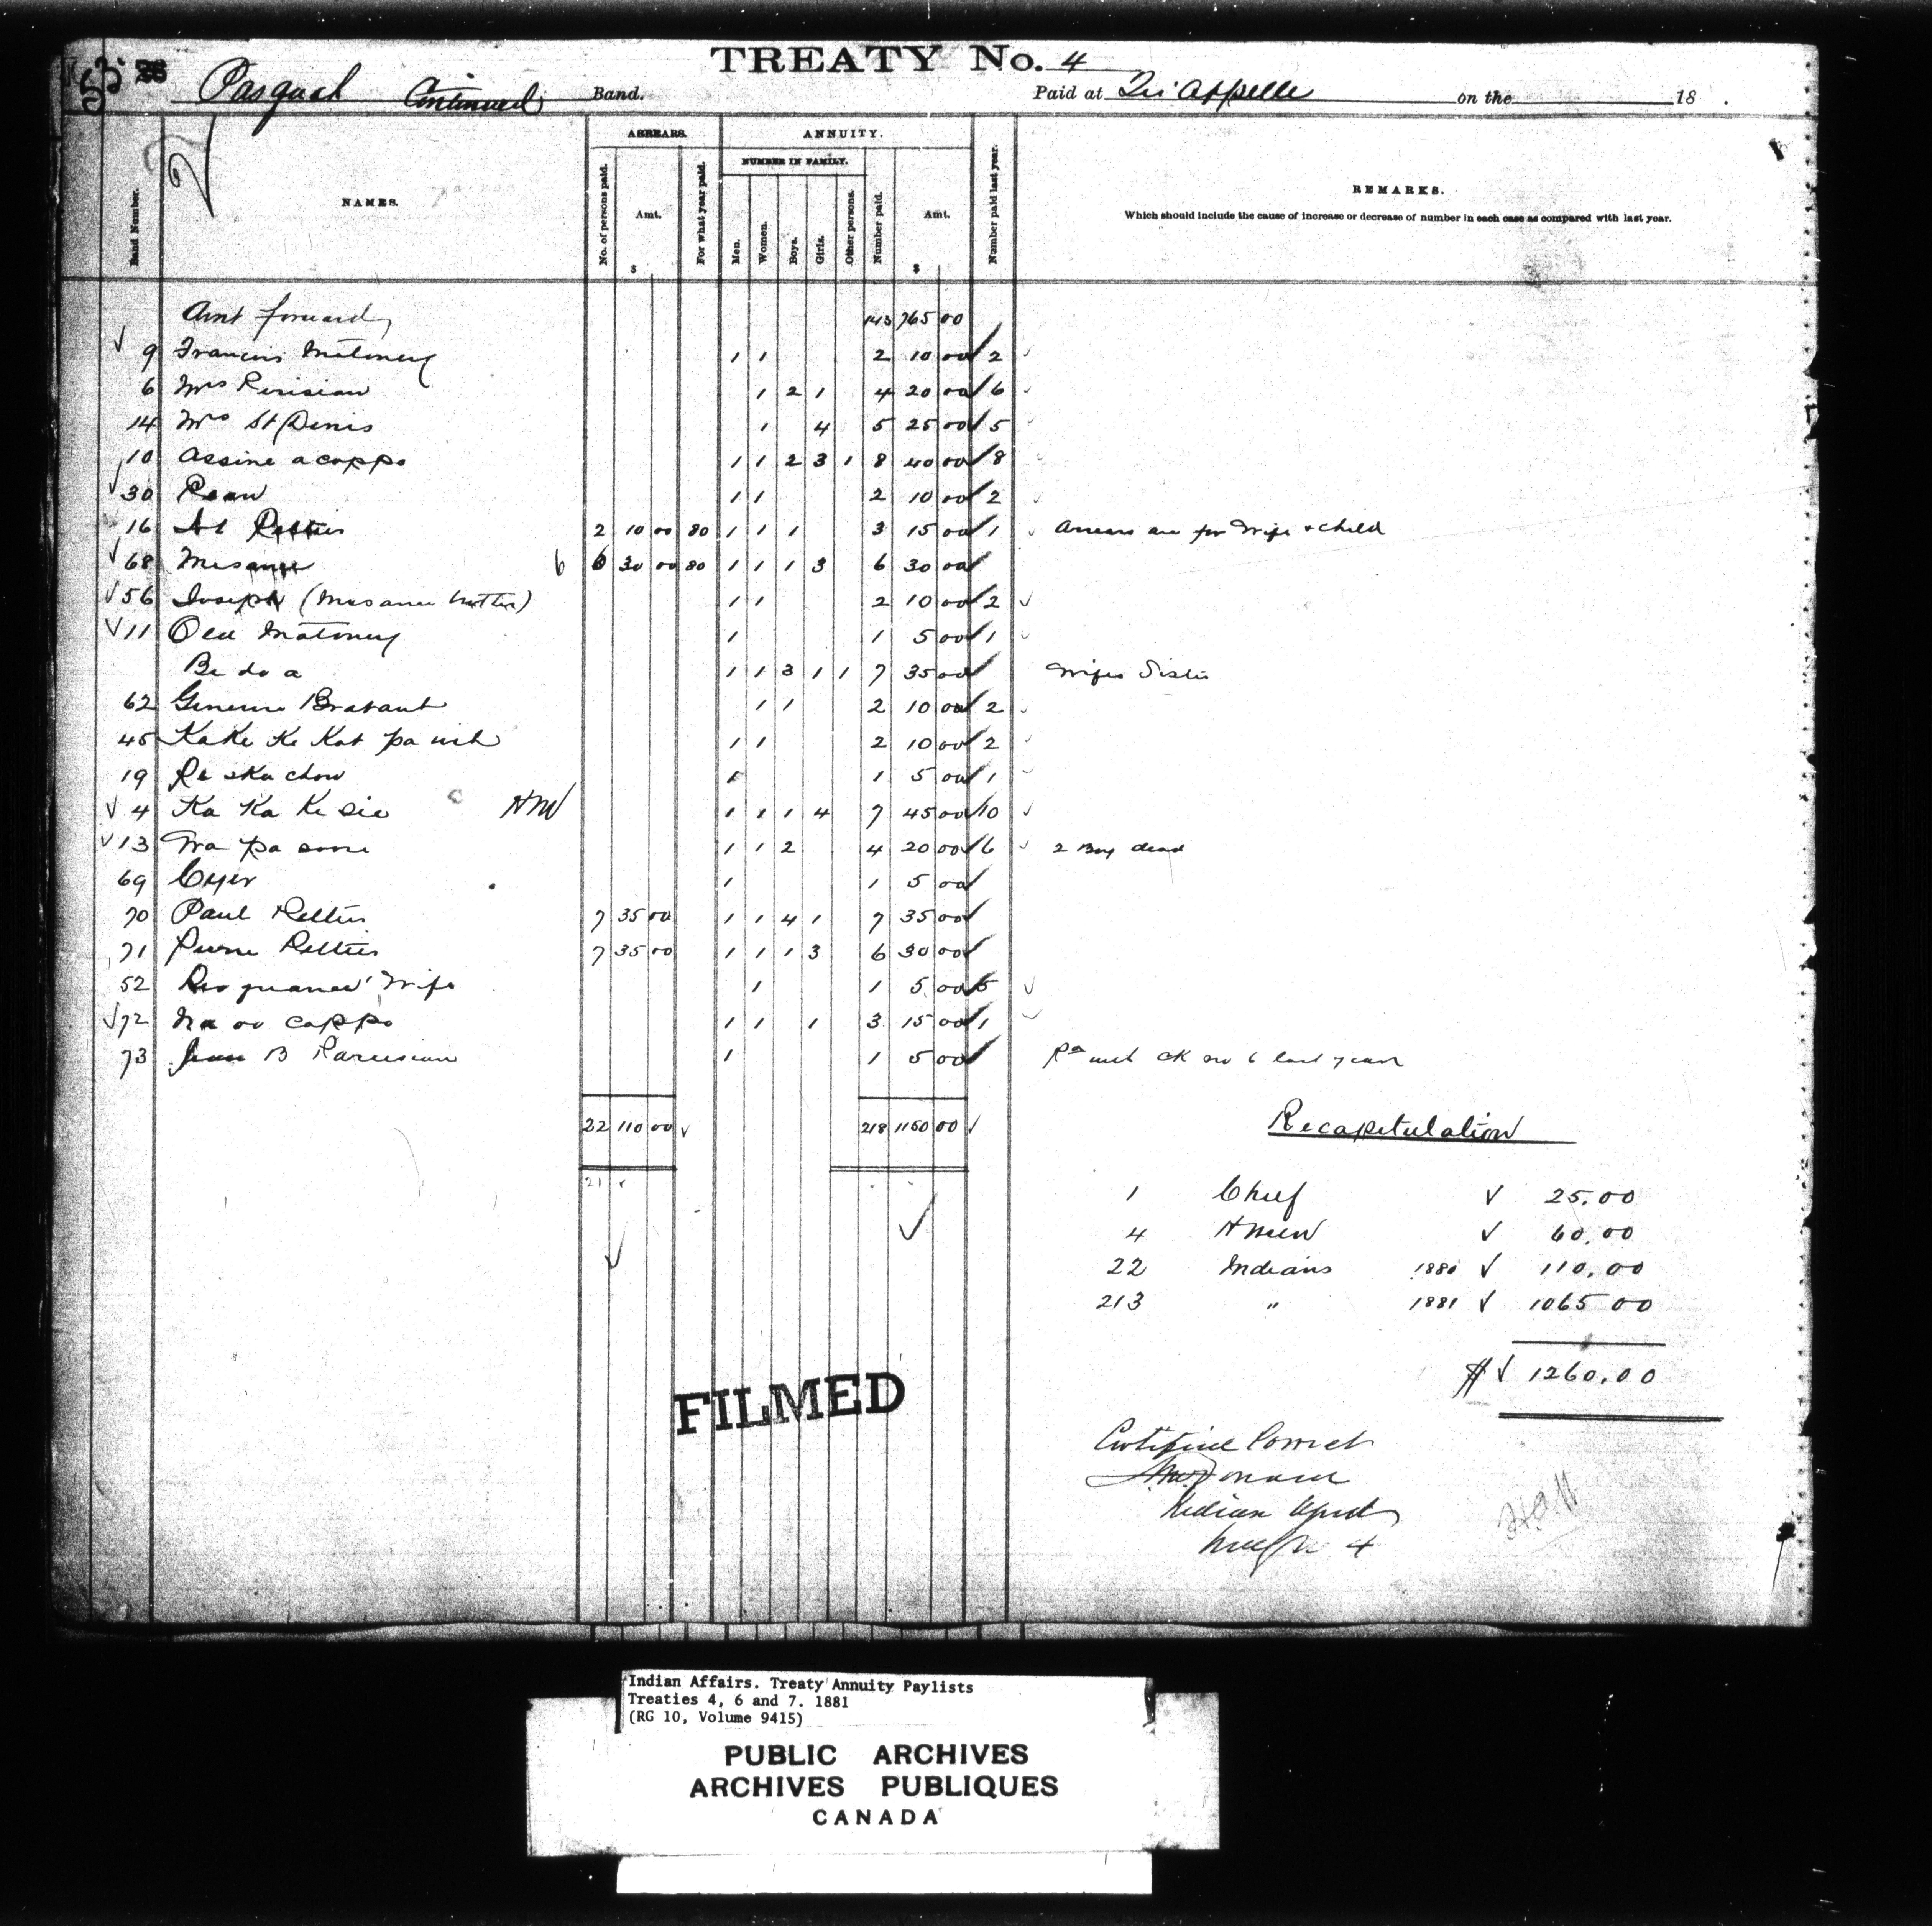 TREATY No. 4
Pasqual Continued Band. Paid at Qu'Appelle on the 18 .
Band Number. NAMES. ARREARS. No. of persons paid. Amt. $ For what year paid. ANNUITY. NUMBER IN FAMILY. Men. Women. Boys. Girls. Other persons. Number paid. Amt. $ Number paid last year. REMARKS.
Which should include the cause of increase or decrease of number in each case as compared with last year.
Amt forward 143 765 00
✓ 9 Francois 1 1 2 10 00 2
6 Mrs Perisian 1 2 1 4 20 00 6
14 Mrs St Denis 1 4 5 25 00 5
10 Assine a cappo 1 1 2 3 1 8 40 00 8
✓ 30 1 1 2 10 00 2
16 2 10 00 80 1 1 1 3 15 00 1 Arrears are for Wife & child
✓ 68 6 6 30 00 80 1 1 1 3 6 30 00
✓ 56 Joseph 1 1 2 10 00 2 ✓
✓ 11 Old 1 1 5 00 1
Be do a 1 1 3 1 1 7 35 00 Wifes Sister
62 Brabant 1 1 2 10 00 2
45 Kake Ke Kot pa 1 1 2 10 00 2
19 Pe ska chow 1 1 5 00 1
✓ 4 Ka Ka Ke sic HM 1 1 1 4 7 45 00 10 ✓
✓ 13 Wa pa 1 1 2 4 20 00 6 ✓ 2 Boy dead
69 Cyer 1 1 5 00
70 Paul 7 35 00 1 1 4 1 7 35 00
71 Pierre 7 35 00 1 1 1 3 6 30 00
52 Wife 1 1 5 00 5 ✓
✓ 72 cappo 1 1 1 3 15 00 1
73 B 1 1 5 00 6 last year
22 110 00 ✓ 218 1150 00 ✓
21
Recapitulation
1 Chief ✓ 25.00
4 HMen ✓ 60.00
22 Indians 1880 ✓ 110.00
213 " 1881 ✓ 1065 00
$ ✓ 1260.00
Certified Correct
Indian Agent
4
FILMED
Indian Affairs. Treaty Annuity Paylists
Treaties 4, 6 and 7. 1881
(RG 10, Volume 9415)
PUBLIC ARCHIVES
ARCHIVES PUBLIQUES
CANADA